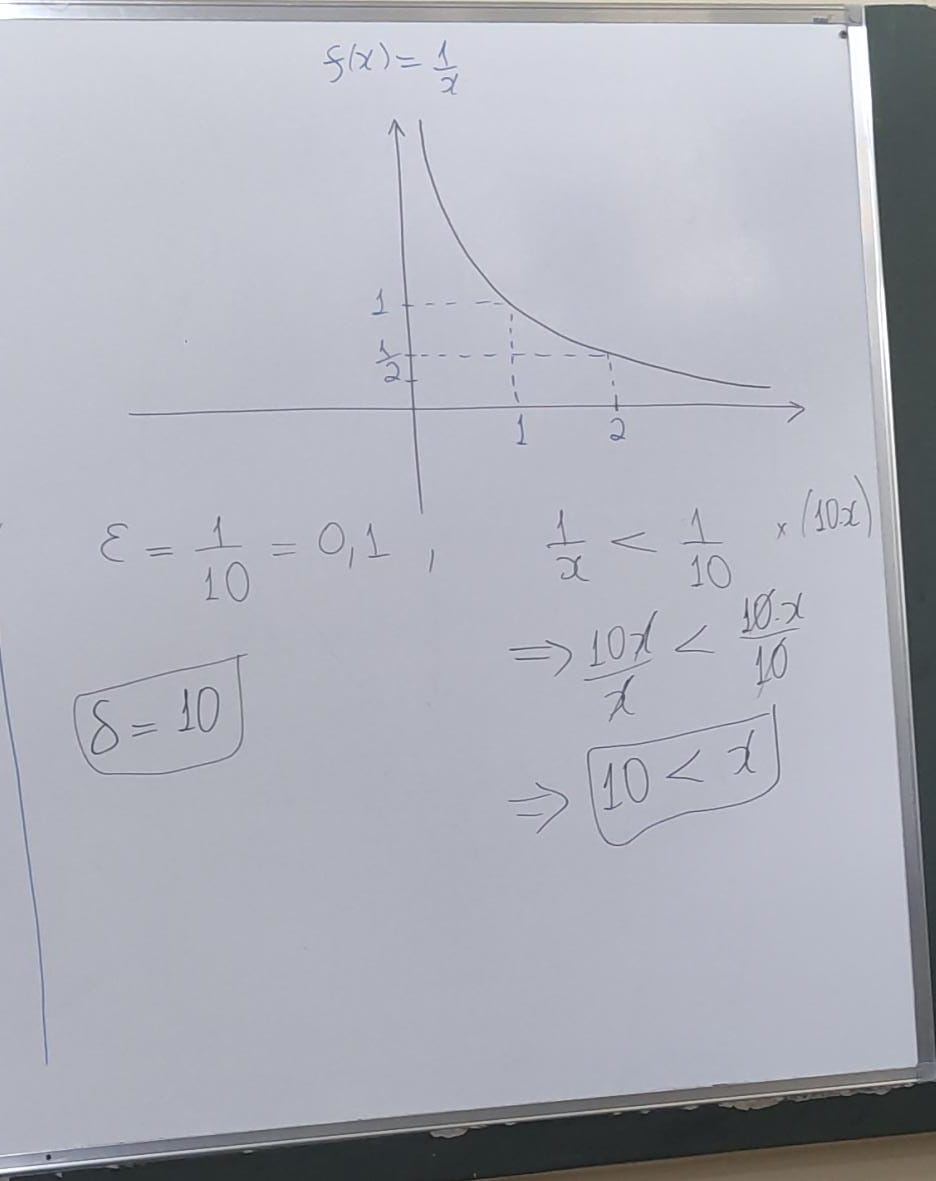 f(x) = 1/x
1
1/2
1 2
ε = 1/10 = 0,1 , 1/x < 1/10 × (10x)
⇒ 10x/x < 10·x/10
δ = 10
⇒ 10 < x